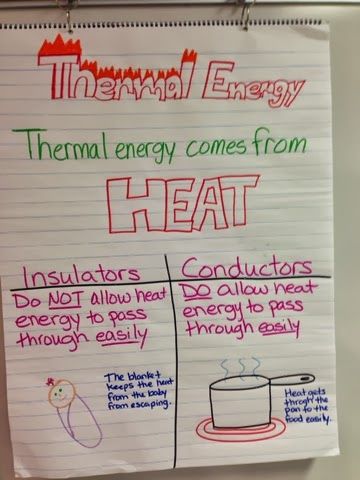 Thermal Energy
Thermal energy comes from
HEAT
Insulators
Do NOT allow heat
energy to pass
through easily
The blanket
keeps the heat
from the baby
from escaping.
Conductors
DO allow heat
energy to pass
through easily
Heat gets
throgh the
pan to the
food easily.